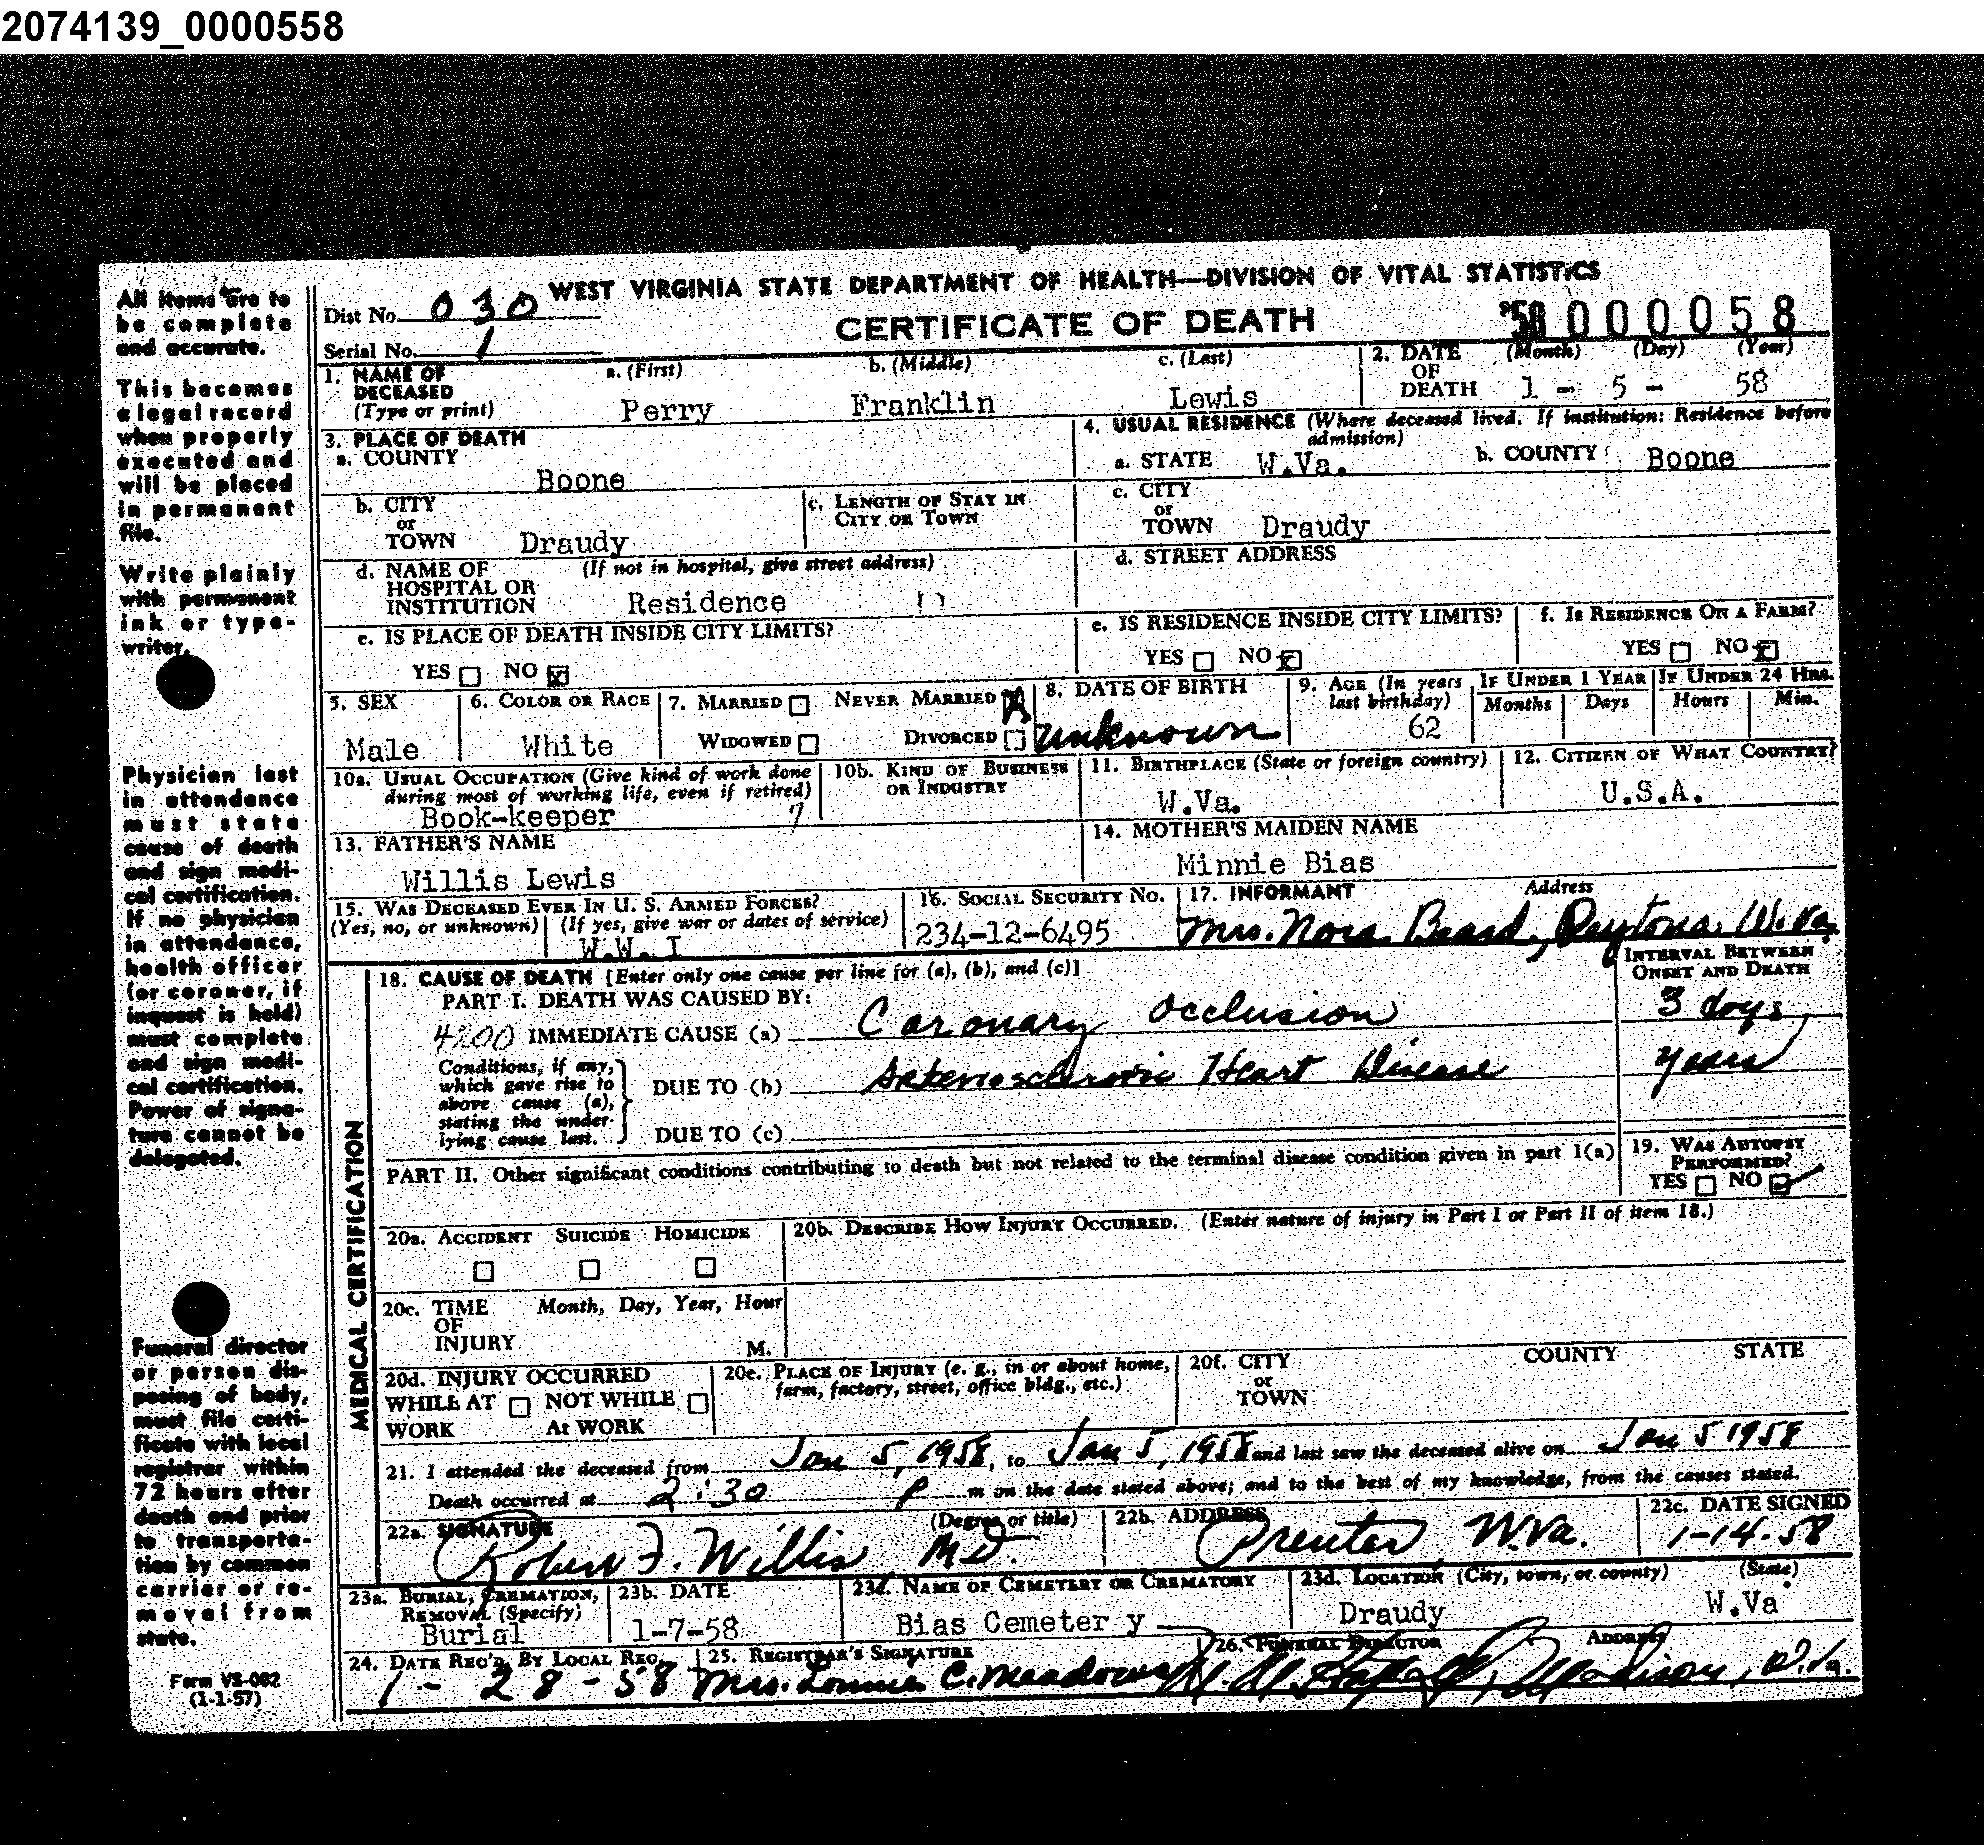 2074139_0000558
All items are to
be complete
and accurate.
This becomes
a legal record
when properly
executed and
will be placed
in permanent
file.
Write plainly
with permanent
ink or type-
writer.
Physician last
in attendance
must state
cause of death
and sign medi-
cal certification.
If no physician
in attendance,
health officer
(or coroner, if
inquest is held)
must complete
and sign medi-
cal certification.
Power of signa-
ture cannot be
delegated.
Funeral director
or person dis-
posing of body,
must file certi-
ficate with local
registrar within
72 hours after
death and prior
to transporta-
tion by common
carrier or re-
moval from
state.
Form VS-062
(1-1-57)
WEST VIRGINIA STATE DEPARTMENT OF HEALTH—DIVISION OF VITAL STATISTICS
Dist No. 030
CERTIFICATE OF DEATH
'58 000058
Serial No. 1
1. NAME OF DECEASED (Type or print)
a. (First) Perry
b. (Middle) Franklin
c. (Last) Lewis
2. DATE OF DEATH (Month) (Day) (Year) 1 - 5 - 58
3. PLACE OF DEATH
a. COUNTY Boone
4. USUAL RESIDENCE (Where deceased lived. If institution: Residence before admission)
a. STATE W.Va. b. COUNTY Boone
b. CITY or TOWN Draudy
c. LENGTH OF STAY IN CITY OR TOWN
c. CITY or TOWN Draudy
d. NAME OF HOSPITAL OR INSTITUTION (If not in hospital, give street address) Residence
d. STREET ADDRESS
e. IS PLACE OF DEATH INSIDE CITY LIMITS?
YES NO x
e. IS RESIDENCE INSIDE CITY LIMITS?
YES NO x
f. IS RESIDENCE ON A FARM?
YES NO x
5. SEX Male
6. COLOR OR RACE White
7. MARRIED NEVER MARRIED X
WIDOWED DIVORCED
8. DATE OF BIRTH unknown
9. AGE (In years last birthday) 62
IF UNDER 1 YEAR Months Days
IF UNDER 24 HRS. Hours Min.
10a. USUAL OCCUPATION (Give kind of work done during most of working life, even if retired) Book-keeper 7
10b. KIND OF BUSINESS OR INDUSTRY
11. BIRTHPLACE (State or foreign country) W.Va.
12. CITIZEN OF WHAT COUNTRY? U.S.A.
13. FATHER'S NAME Willis Lewis
14. MOTHER'S MAIDEN NAME Minnie Bias
15. WAS DECEASED EVER IN U. S. ARMED FORCES?
(Yes, no, or unknown) (If yes, give war or dates of service) W.W. I
16. SOCIAL SECURITY NO. 234-12-6495
17. INFORMANT Address
Mrs. Nora Beard, Peytona, W.Va.
MEDICAL CERTIFICATION
18. CAUSE OF DEATH [Enter only one cause per line for (a), (b), and (c)]
INTERVAL BETWEEN ONSET AND DEATH
PART I. DEATH WAS CAUSED BY:
4200 IMMEDIATE CAUSE (a) Coronary Occlusion 3 days
Conditions, if any, which gave rise to above cause (a), stating the underlying cause last.
DUE TO (b) Arteriosclerotic Heart Disease years
DUE TO (c)
PART II. Other significant conditions contributing to death but not related to the terminal disease condition given in part I(a)
19. WAS AUTOPSY PERFORMED?
YES NO ✓
20a. ACCIDENT SUICIDE HOMICIDE
20b. DESCRIBE HOW INJURY OCCURRED. (Enter nature of injury in Part I or Part II of item 18.)
20c. TIME OF INJURY Month, Day, Year, Hour M.
20d. INJURY OCCURRED
WHILE AT WORK NOT WHILE At WORK
20e. PLACE OF INJURY (e. g., in or about home, farm, factory, street, office bldg., etc.)
20f. CITY or TOWN COUNTY STATE
21. I attended the deceased from Jan 5, 1958, to Jan 5, 1958 and last saw the deceased alive on Jan 5 1958
Death occurred at 2:30 P m on the date stated above; and to the best of my knowledge, from the causes stated.
22a. SIGNATURE (Degree or title) Robert F. Willis M.D.
22b. ADDRESS Prenter W.Va.
22c. DATE SIGNED 1-14-58
23a. BURIAL, CREMATION, REMOVAL (Specify) Burial
23b. DATE 1-7-58
23c. NAME OF CEMETERY OR CREMATORY Bias Cemeter y
23d. LOCATION (City, town, or county) (State) Draudy W.Va
24. DATE REC'D. BY LOCAL REG. 1 - 28 - 58
25. REGISTRAR'S SIGNATURE Mrs. Lonnie C. Meadows
26. FUNERAL DIRECTOR ADDRESS
Madison, W.Va.